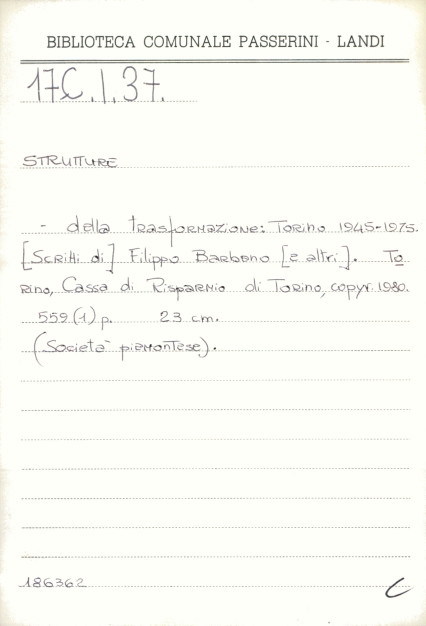 BIBLIOTECA COMUNALE PASSERINI - LANDI
17C.I.37.
STRUTTURE
- della trasformazione: Torino 1945-1975.
[Scritti di] Filippo Barbano [e altri]. To
rino, Cassa di Risparmio di Torino, copyr. 1980.
559 (1) p. 23 cm.
(Società piemontese).
186362
C